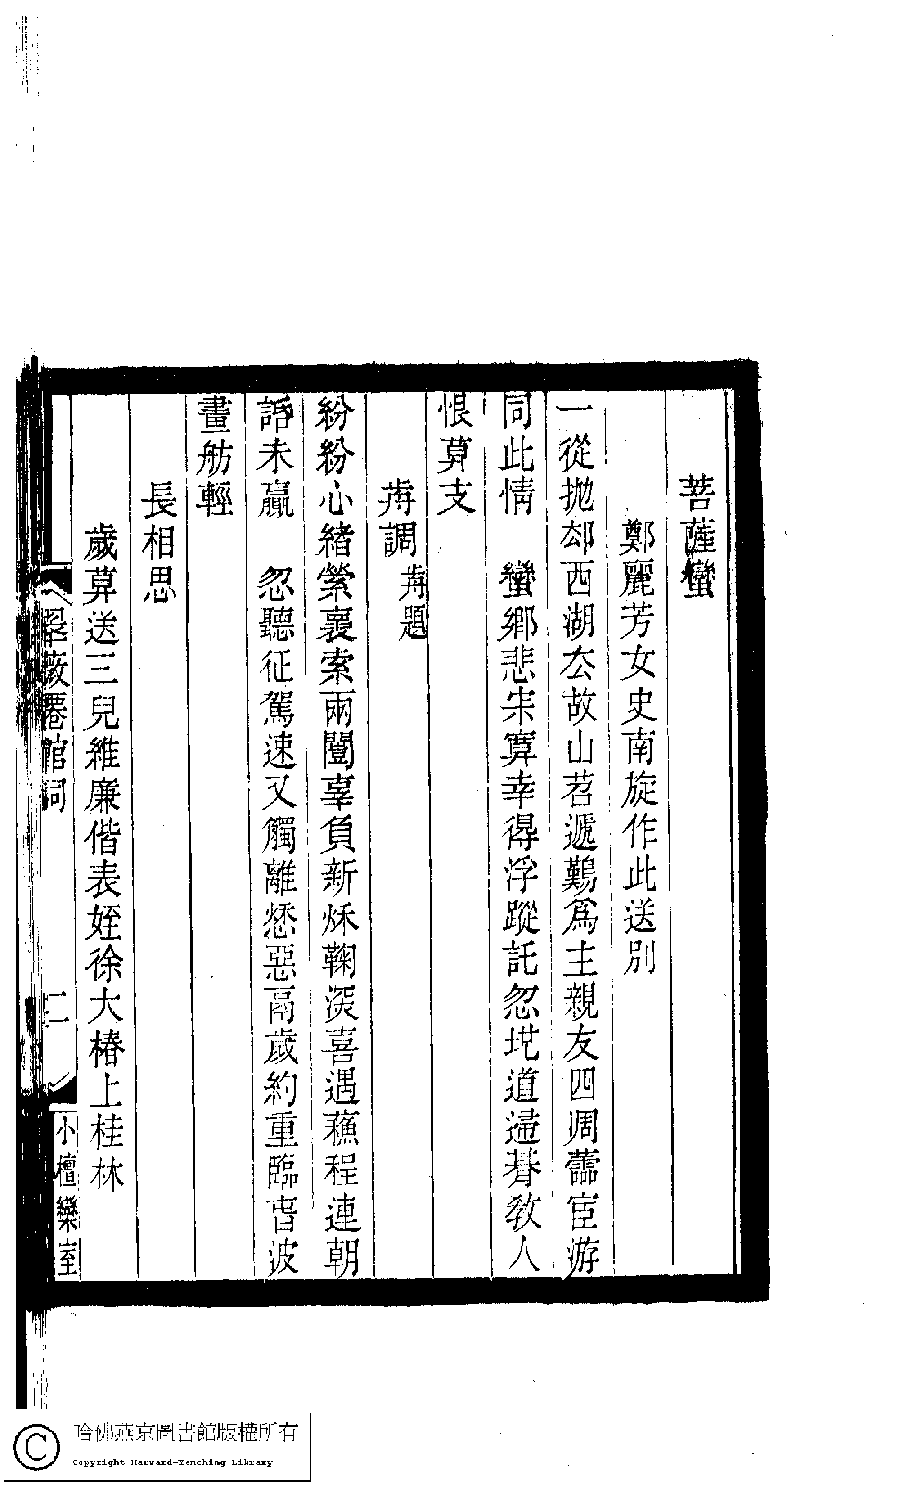 菩薩蠻
鄭麗芳女史南旋作此送別
一從抛郤西湖厺故山苕遞𪄿爲主親友四凋蘦宦游
同此情　蠻鄉悲宋寞幸得浮蹤託忽道歸朞敎人
恨萛支
歬調 歬題
紛紛心緖縈裏索兩闈辜負新秌鞠深喜遇蘓程連朝
語未贏　忽聽征駕速又觸離愁惡鬲歲約重臨旹波
畫舫輕
長相思
歲萛送三兒維廉偕表姪徐大椿上桂林
薇館詞
二
小檀欒室
哈佛燕京圖書館版權所有
Copyright Harvard-Yenching Library